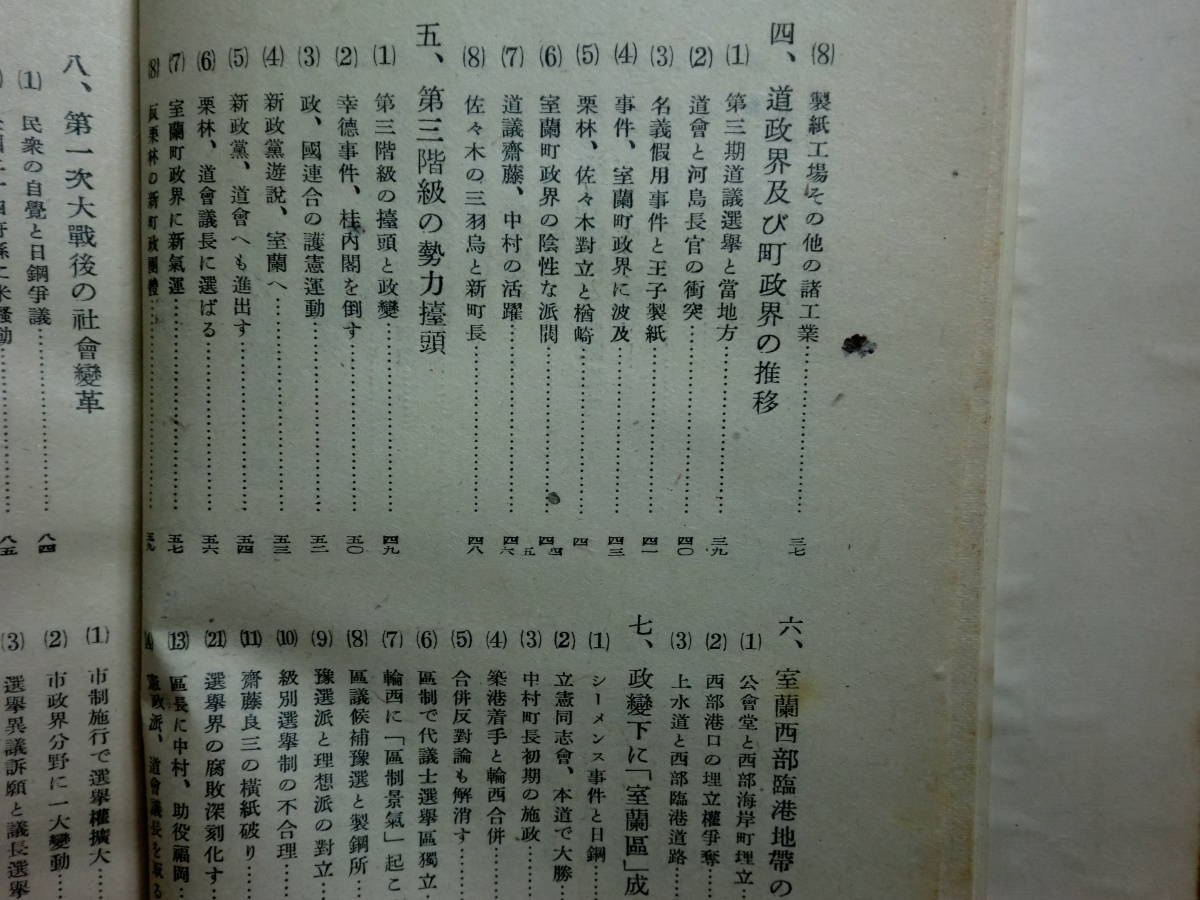 (8) 製紙工場その他の諸工業………三七
四、道政界及び町政界の推移
(1) 第三期道議選擧と當地方………三九
(2) 道會と河島長官の衝突………四〇
(3) 名義假用事件と王子製紙………四一
(4) 事件、室蘭町政界に波及………四三
(5) 栗林、佐々木對立と楢崎………四
(6) 室蘭町政界の陰性な派閥………四四
(7) 道議齋藤、中村の活躍………四六
(8) 佐々木の三羽烏と新町長………四八
五、第三階級の勢力擡頭
(1) 第三階級の擡頭と政變………四九
(2) 幸德事件、桂内閣を倒す………五〇
(3) 政、國連合の護憲運動………五二
(4) 新政黨遊説、室蘭へ………五三
(5) 新政黨、道會へも進出す………五四
(6) 栗林、道會議長に選ばる………五六
(7) 室蘭町政界に新氣運………五七
(8) 反栗林の新町政團體………五九
六、室蘭西部臨港地帶の
(1) 公會堂と西部海岸町埋立……
(2) 西部港口の埋立權爭奪……
(3) 上水道と西部臨港道路……
七、政變下に「室蘭區」成
(1) シーメンス事件と日鋼……
(2) 立憲同志會、本道で大勝……
(3) 中村町長初期の施政……
(4) 築港着手と輪西合併……
(5) 合併反對論も解消す……
(6) 區制で代議士選擧區獨立……
(7) 輪西に「區制景氣」起こ
(8) 區議候補豫選と製鋼所……
(9) 豫選派と理想派の對立……
(10) 級別選擧制の不合理……
(11) 齋藤良三の横紙破り……
(21) 選擧界の腐敗深刻化す……
(13) 區長に中村、助役福岡……
憲政派、道會議長を取る
八、第一次大戰後の社會變革
(1) 民衆の自覺と日鋼爭議………八四
八五
(1) 市制施行で選擧權擴大……
(2) 市政界分野に一大變動……
(3) 選擧異議訴願と議長選擧